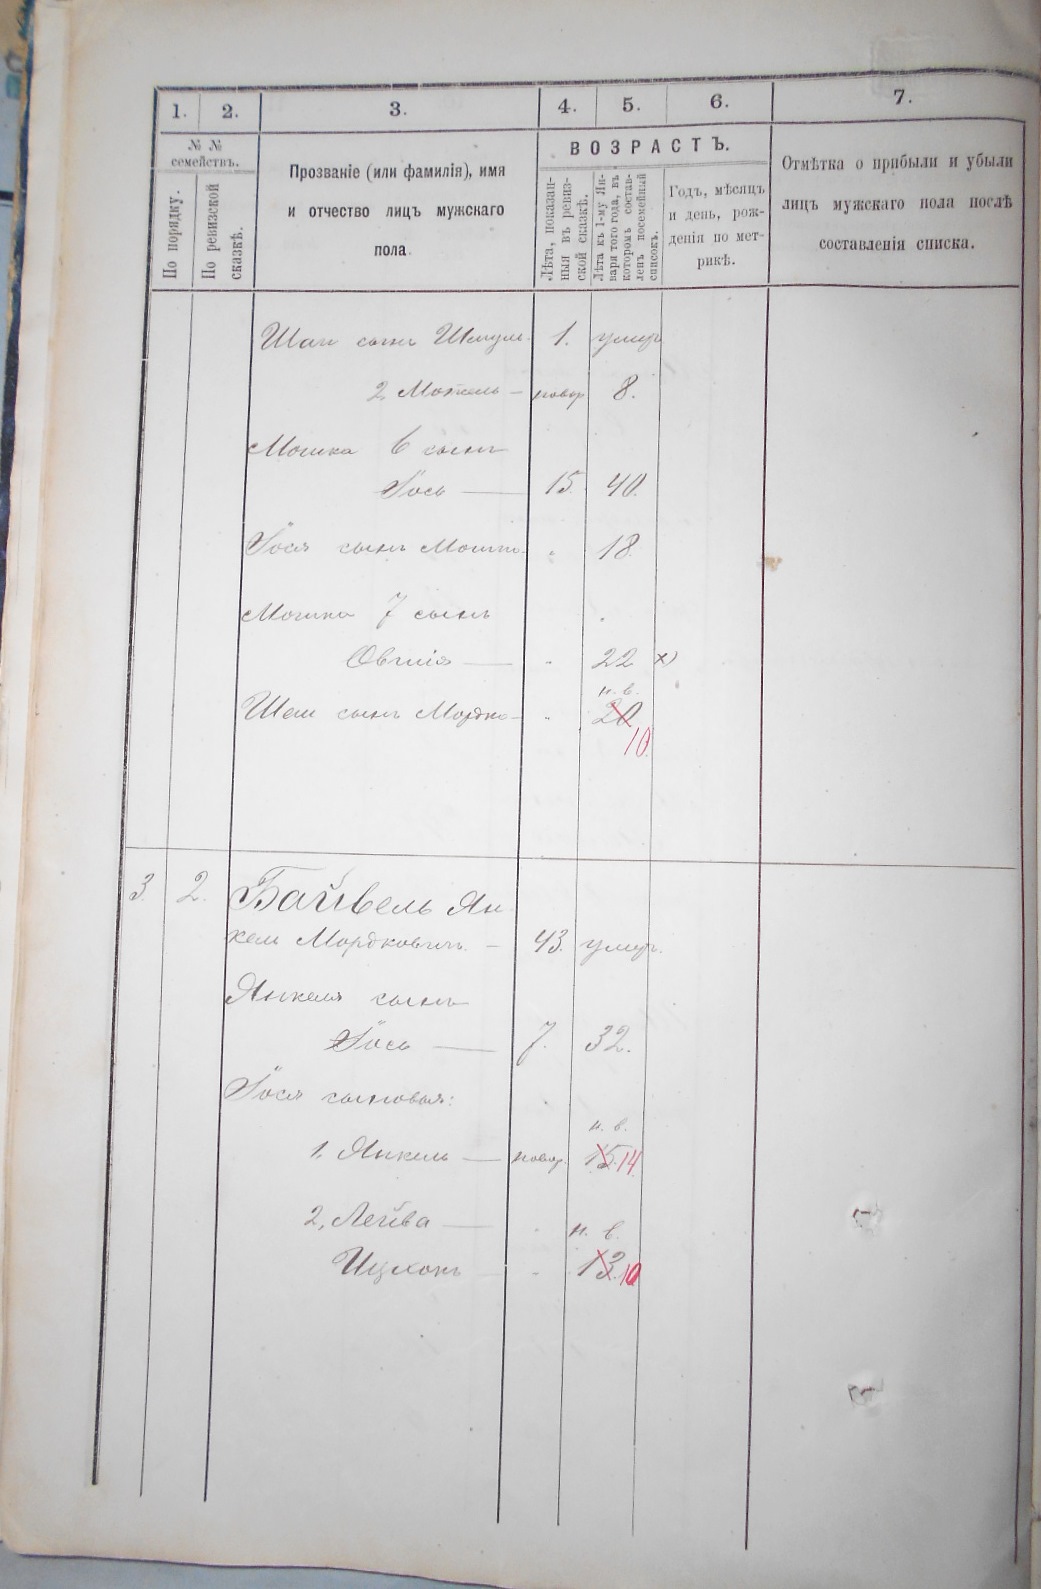 1. 2. 3. 4. 5. 6. 7.
№ №
семействъ.
По порядку.
По ревизской
сказкѣ.
Прозваніе (или фамилія), имя
и отчество лицъ мужскаго
пола.
ВОЗРАСТЪ.
Лѣта, показан-
ныя въ ревиз-
ской сказкѣ.
Лѣта къ 1-му Ян-
варя того года, въ
которомъ состав-
ленъ посемейный
списокъ.
Годъ, мѣсяцъ
и день, рож-
денія по мет-
рикѣ.
Отмѣтка о прибыли и убыли
лицъ мужскаго пола послѣ
составленія списка.
сынъ 1.
2, новор 8.
Мошка 6 сынъ
Іось 15. 40.
Іося сынъ 18.
Мошка 7 сынъ
Овшія 22 х)
н. в.
сынъ Мордко 20
10.
3. 2. Байвель Ян
кель Мордковичъ 43. умер.
Янкеля сынъ
Іось 7. 32.
Іося сыновья:
н. в.
1, Янкель новор. 15. 14.
2, Лейба н. в.
Ицхокъ 13. 10